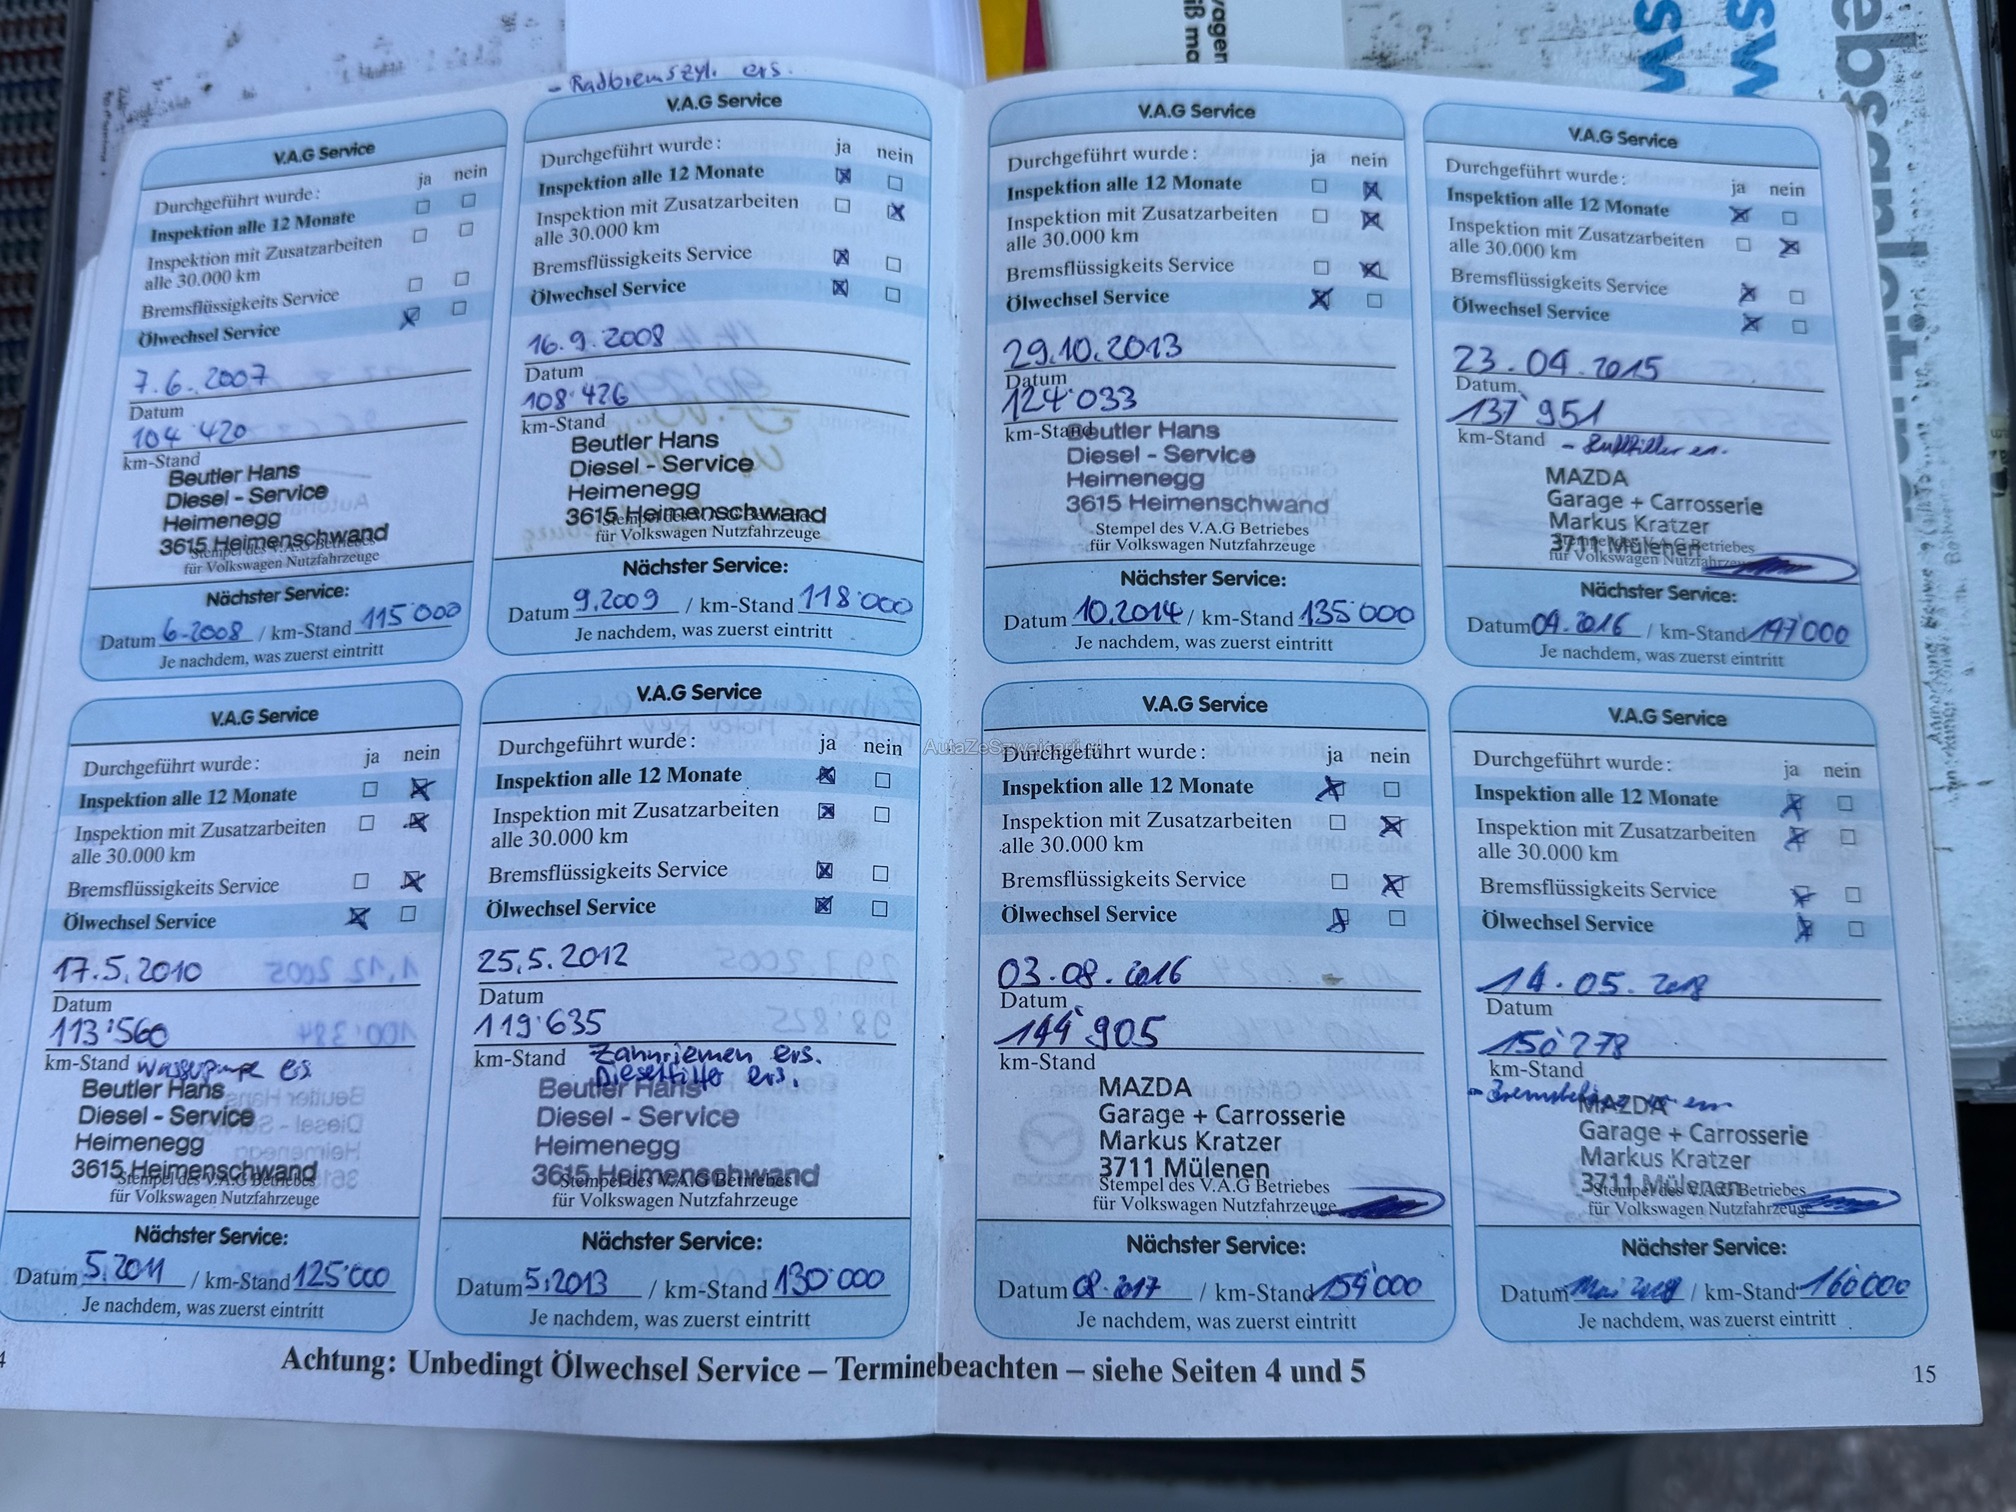 - Radbremszyl. ers.
V.A.G Service
Durchgeführt wurde: ja nein
Inspektion alle 12 Monate
Inspektion mit Zusatzarbeiten
alle 30.000 km
Bremsflüssigkeits Service
Ölwechsel Service
7.6.2007
Datum
104'420
km-Stand
Beutler Hans
Diesel - Service
Heimenegg
3615 Heimenschwand
Stempel des V.A.G Betriebes
für Volkswagen Nutzfahrzeuge
Nächster Service:
Datum 6-2008 / km-Stand 115'000
Je nachdem, was zuerst eintritt
V.A.G Service
Durchgeführt wurde: ja nein
Inspektion alle 12 Monate
Inspektion mit Zusatzarbeiten
alle 30.000 km
Bremsflüssigkeits Service
Ölwechsel Service
16.9.2008
Datum
108'426
km-Stand
Beutler Hans
Diesel - Service
Heimenegg
3615 Heimenschwand
Stempel des V.A.G Betriebes
für Volkswagen Nutzfahrzeuge
Nächster Service:
Datum 9.2009 / km-Stand 118'000
Je nachdem, was zuerst eintritt
V.A.G Service
Durchgeführt wurde: ja nein
Inspektion alle 12 Monate
Inspektion mit Zusatzarbeiten
alle 30.000 km
Bremsflüssigkeits Service
Ölwechsel Service
29.10.2013
Datum
124'033
km-Stand
Beutler Hans
Diesel - Service
Heimenegg
3615 Heimenschwand
Stempel des V.A.G Betriebes
für Volkswagen Nutzfahrzeuge
Nächster Service:
Datum 10.2014 / km-Stand 135'000
Je nachdem, was zuerst eintritt
V.A.G Service
Durchgeführt wurde: ja nein
Inspektion alle 12 Monate
Inspektion mit Zusatzarbeiten
alle 30.000 km
Bremsflüssigkeits Service
Ölwechsel Service
23.04.2015
Datum
137'951
km-Stand - Luftfilter er.
MAZDA
Garage + Carrosserie
Markus Kratzer
3711 Mülenen
Stempel des V.A.G Betriebes
für Volkswagen Nutzfahrzeuge
Nächster Service:
Datum 04.2016 / km-Stand 147'000
Je nachdem, was zuerst eintritt
V.A.G Service
Durchgeführt wurde: ja nein
Inspektion alle 12 Monate
Inspektion mit Zusatzarbeiten
alle 30.000 km
Bremsflüssigkeits Service
Ölwechsel Service
17.5.2010
Datum
113'560
km-Stand Wasserpumpe ers
Beutler Hans
Diesel - Service
Heimenegg
3615 Heimenschwand
Stempel des V.A.G Betriebes
für Volkswagen Nutzfahrzeuge
Nächster Service:
Datum 5.2011 / km-Stand 125'000
Je nachdem, was zuerst eintritt
V.A.G Service
Durchgeführt wurde: ja nein
Inspektion alle 12 Monate
Inspektion mit Zusatzarbeiten
alle 30.000 km
Bremsflüssigkeits Service
Ölwechsel Service
25.5.2012
Datum
119'635
km-Stand Zahnriemen ers.
Dieselfilter ers.
Beutler Hans
Diesel - Service
Heimenegg
3615 Heimenschwand
Stempel des V.A.G Betriebes
für Volkswagen Nutzfahrzeuge
Nächster Service:
Datum 5.2013 / km-Stand 130'000
Je nachdem, was zuerst eintritt
V.A.G Service
Durchgeführt wurde: ja nein
Inspektion alle 12 Monate
Inspektion mit Zusatzarbeiten
alle 30.000 km
Bremsflüssigkeits Service
Ölwechsel Service
03.08.2016
Datum
144'905
km-Stand
MAZDA
Garage + Carrosserie
Markus Kratzer
3711 Mülenen
Stempel des V.A.G Betriebes
für Volkswagen Nutzfahrzeuge
Nächster Service:
Datum 08.2017 / km-Stand 154'000
Je nachdem, was zuerst eintritt
V.A.G Service
Durchgeführt wurde: ja nein
Inspektion alle 12 Monate
Inspektion mit Zusatzarbeiten
alle 30.000 km
Bremsflüssigkeits Service
Ölwechsel Service
14.05.2018
Datum
150'278
km-Stand
MAZDA
Garage + Carrosserie
Markus Kratzer
3711 Mülenen
Stempel des V.A.G Betriebes
für Volkswagen Nutzfahrzeuge
Nächster Service:
Datum Mai / km-Stand 160'000
Je nachdem, was zuerst eintritt
Achtung: Unbedingt Ölwechsel Service – Termine beachten – siehe Seiten 4 und 5
15